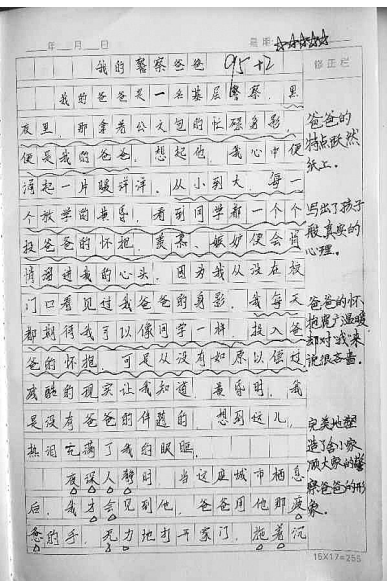 年 月 日
星期
我的警察爸爸
95+2
修正栏
我的爸爸是一名基层警察,黑
夜里,那拿着公文包的忙碌身影,
便是我的爸爸。想起他,我心中便
浮起一片暖洋洋。从小到大,每一
个放学的黄昏,看到同学都一个个
投爸爸的怀抱,羡慕、嫉妒便会悄
悄溜进我的心头。因为我从没在校
门口看见过我爸爸的身影。我每天
都期待我可以像同学一样,投入爸
爸的怀抱。可是从没有如愿以偿过
残酷的现实让我知道,黄昏时,我
是没有爸爸的伴随的。想到这儿,
热泪充满了我的眼眶。
夜深人静时,当这座城市栖息
后,我才会见到他。爸爸用他那疲
惫的手,无力地打开家门,拖着沉
爸爸的
特点跃然
纸上。
写出了孩子
般真实的
心理。
爸爸的怀
抱宽广温暖
却对我来
说很吝啬。
完美地塑
造了舍小家
顾大家的警
察爸爸的形
象。
15X17=255